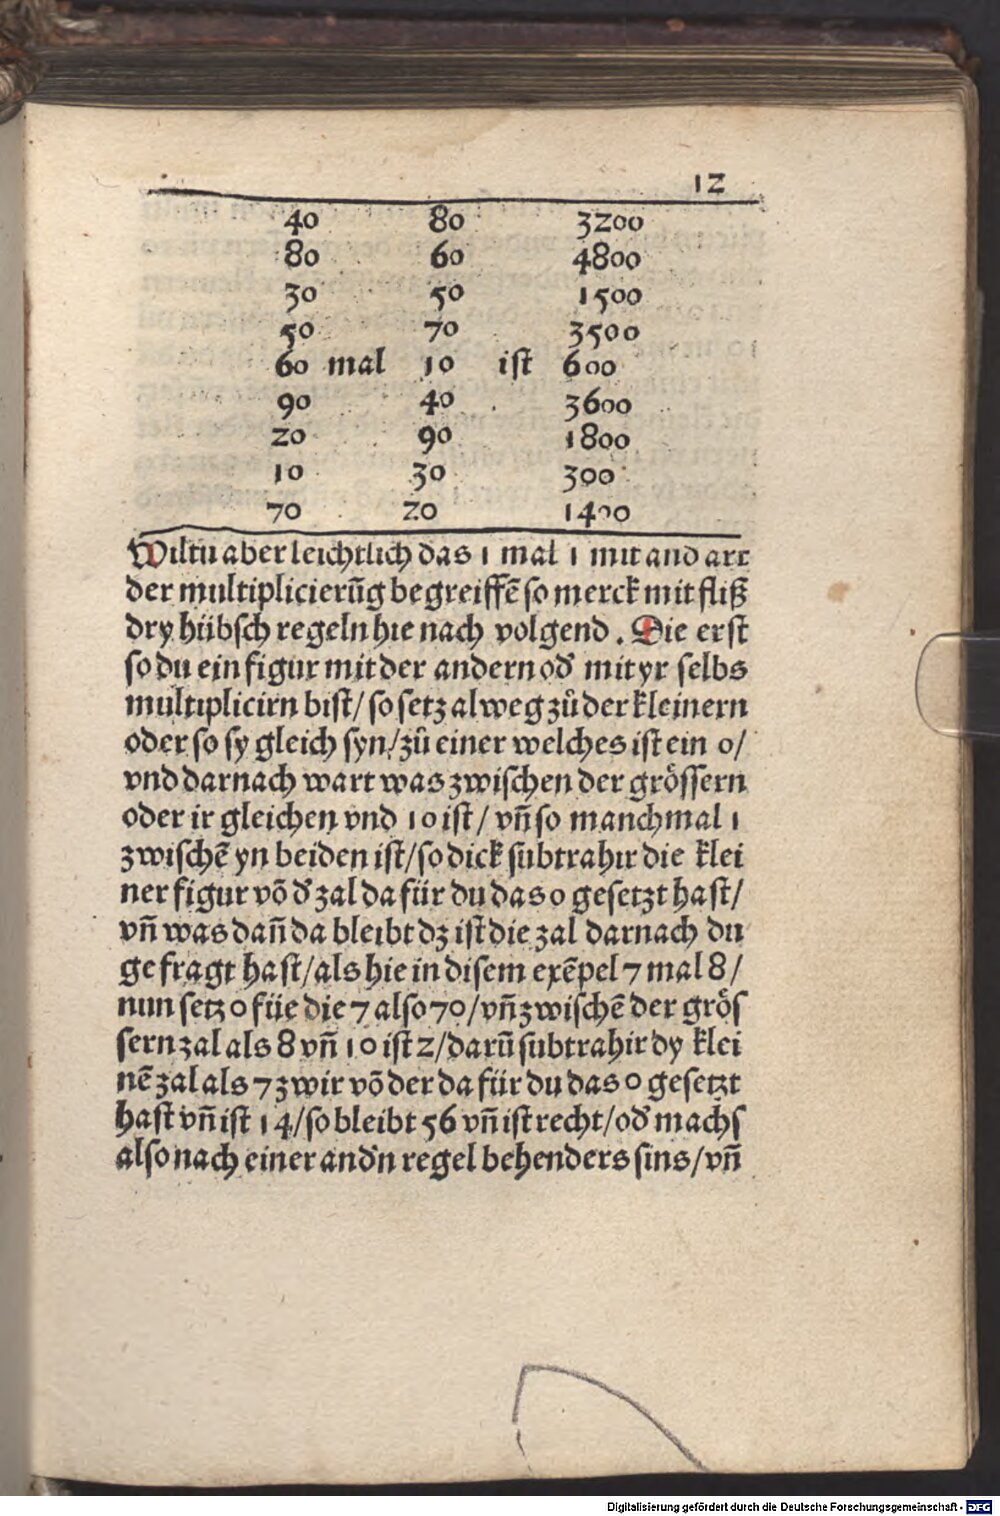 12
40 80 3200
80 60 4800
30 50 1500
50 70 3500
60 mal 10 ist 600
90 40 3600
20 90 1800
10 30 300
70 20 1400
Wiltu aber leichtlich das 1 mal 1 mit and art
der multiplicierūg begreiffē so merck mit fliß
dry hübsch regeln hie nach volgend . Die erst
so du ein figur mit der andern od' mit yr selbs
multiplicirn bist/ so setz alweg zů der kleinern
oder so sy gleich syn/ zů einer welches ist ein 0/
vnd darnach wart was zwischen der grössern
oder ir gleichen vnd 10 ist/ vñ so manchmal 1
zwischē yn beiden ist/ so dick subtrahir die klei
ner figur vō d' zal da für du das 0 gesetzt hast/
vñ was dañ da bleibt dz ist die zal darnach du
gefragt hast/ als hie in disem exēpel 7 mal 8/
nun setz 0 füe die 7 also 70/ vñ zwischē der grös
sern zal als 8 vñ 10 ist 2/ darū subtrahir dy klei
nē zal als 7 zwir vō der da für du das 0 gesetzt
hast vñ ist 14/ so bleibt 56 vñ ist recht/ od' machs
also nach einer and'n regel behenders sins/ vñ
Digitalisierung gefördert durch die Deutsche Forschungsgemeinschaft - DFG